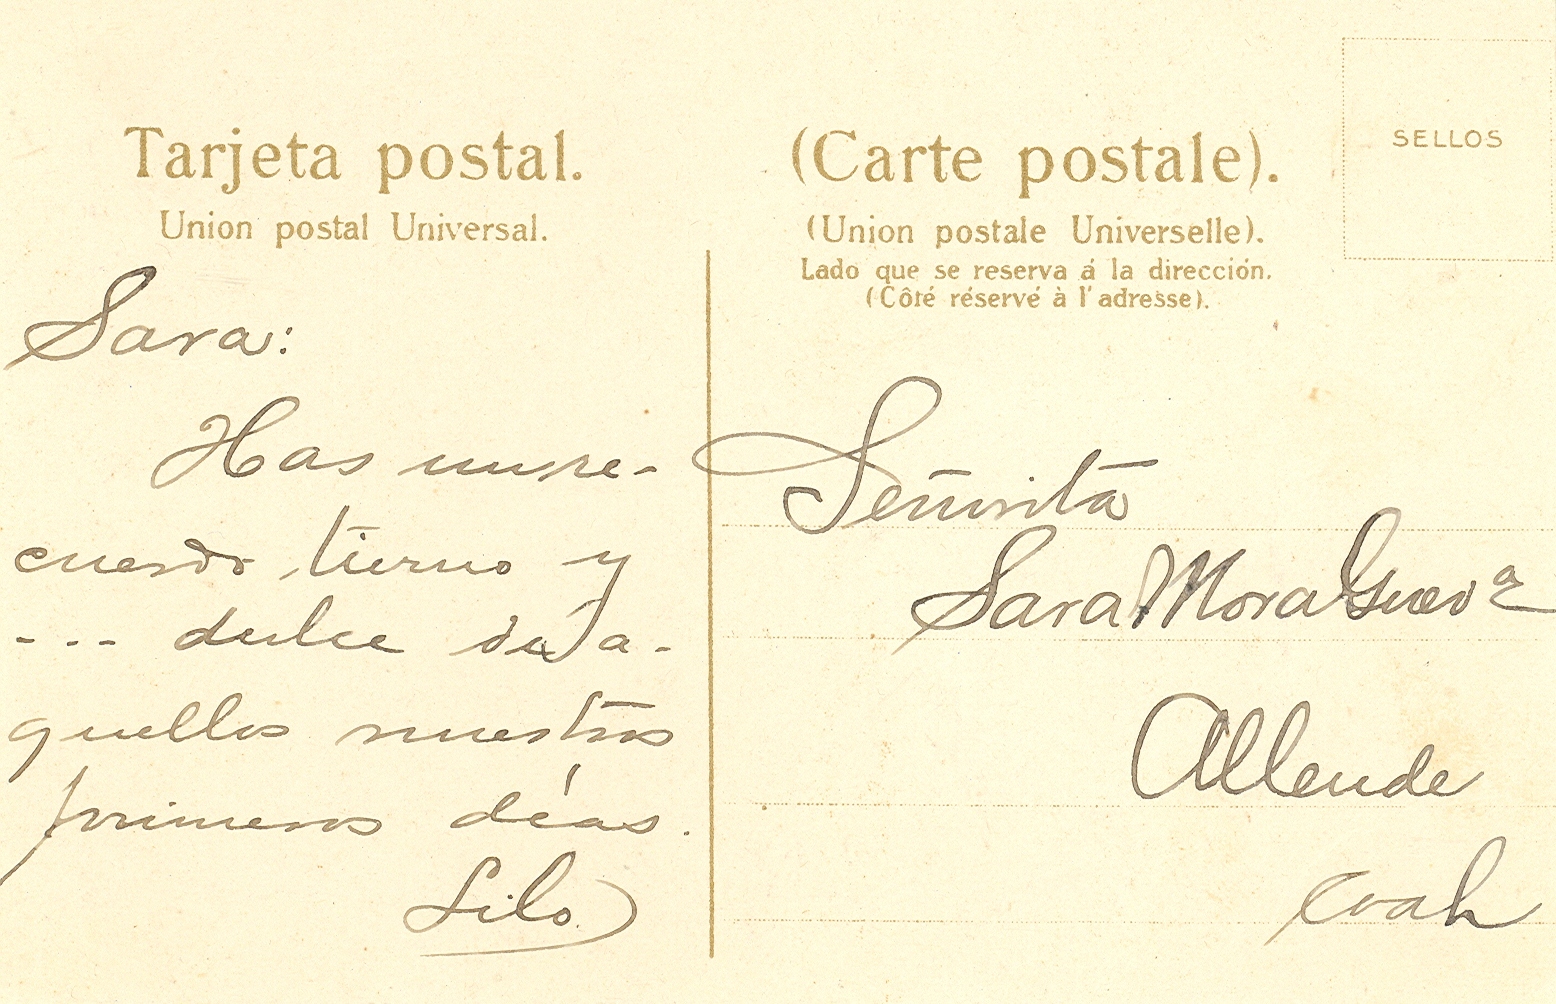 Tarjeta postal.
Union postal Universal.
(Carte postale).
(Union postale Universelle).
Lado que se reserva á la dirección.
(Côté réservé à l'adresse).
SELLOS
Sara:
Has un re-
cuerdo tierno y
--- dulce de a-
quellos nuestros
primeros días.
Lilo
Señorita
Sara Mora
Allende
Coah